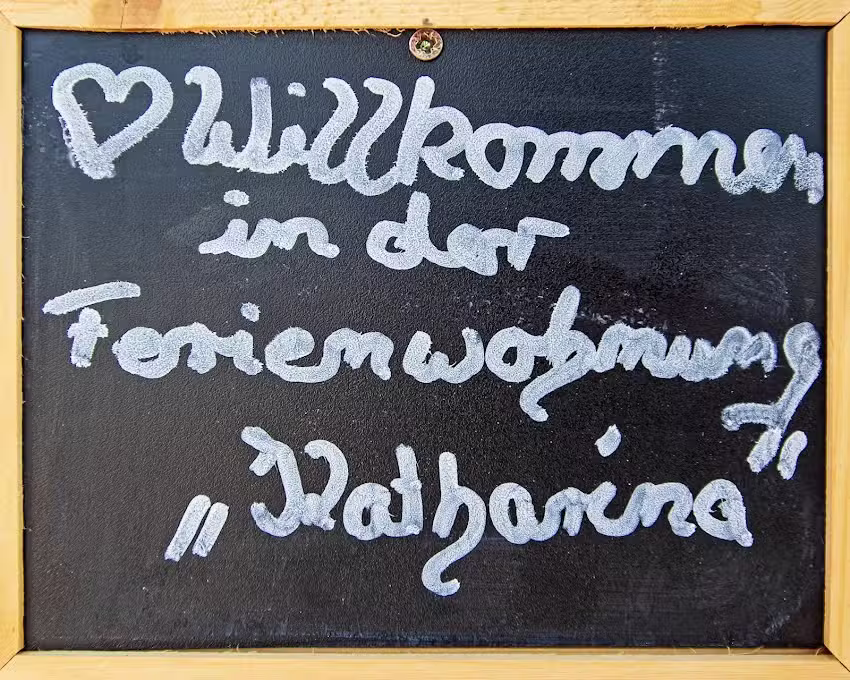 ♡ Willkommen
in der
Ferienwohnung
„Katharina“